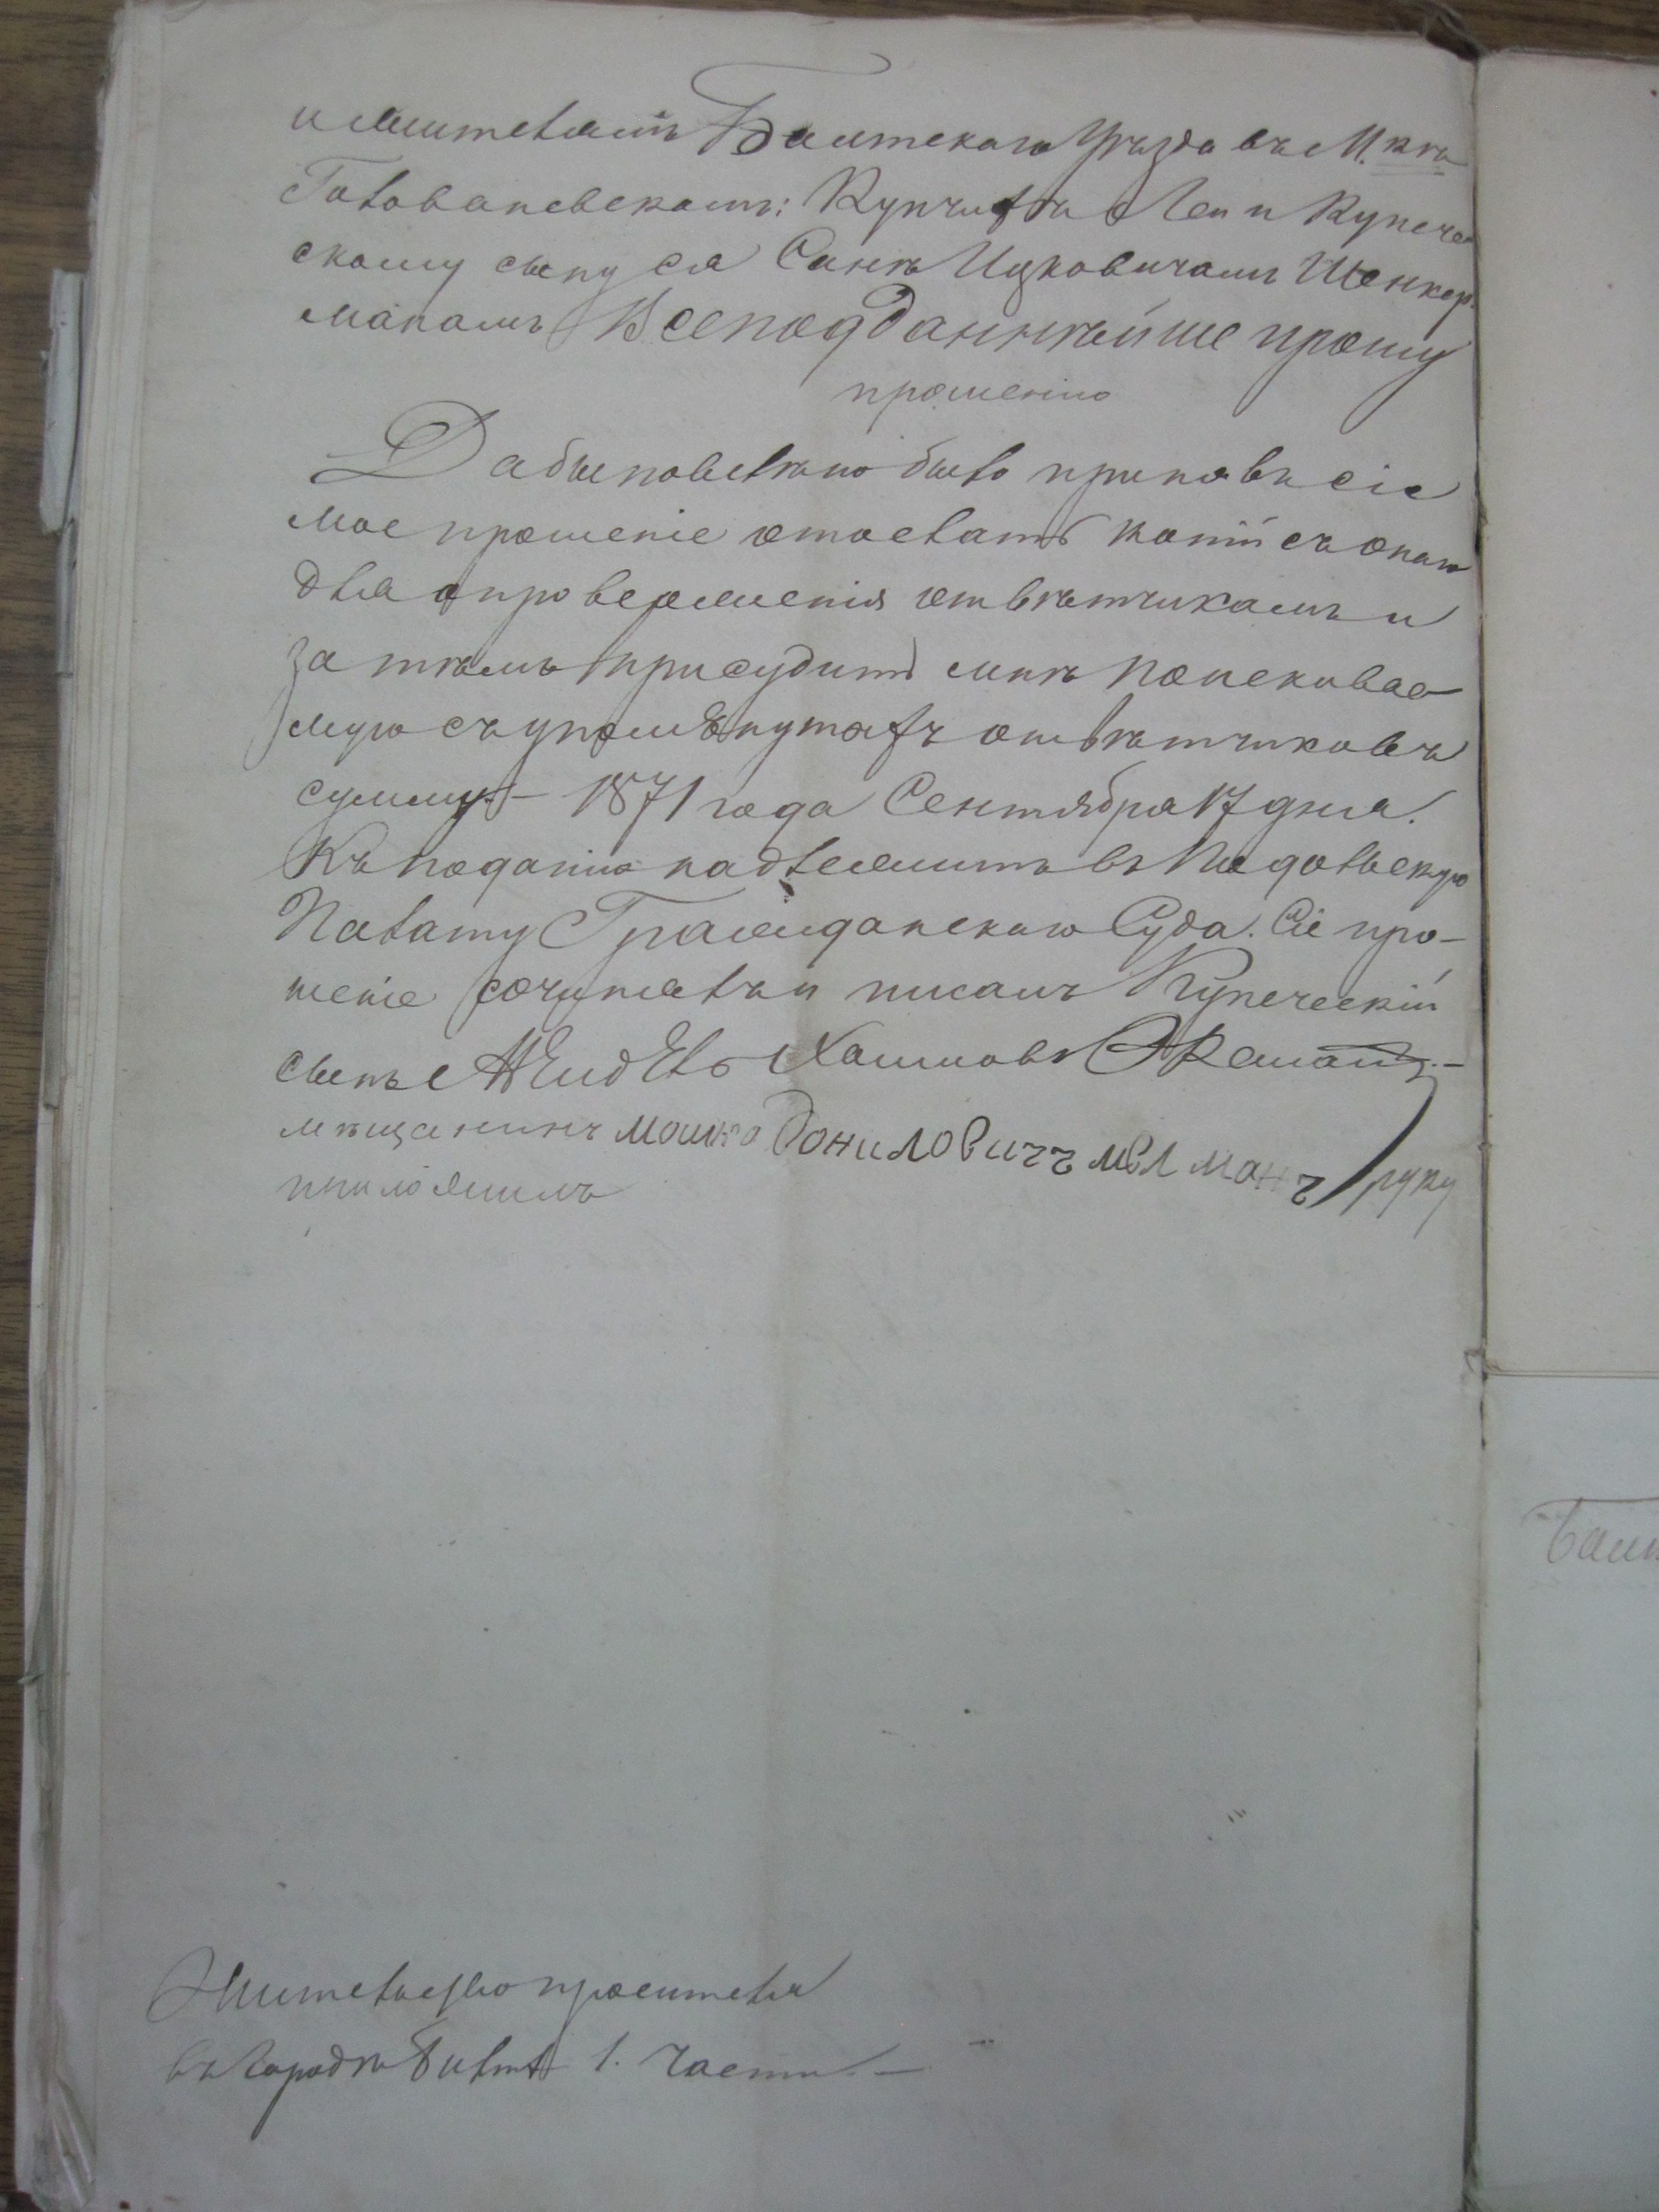 и жителямъ Балтскаго Уѣзда въ М. кѣ
Голованевскомъ: Купчихѣ Леи и Купече
скому сыну ея Санѣ Ицковичамъ Шенкер
манамъ Всеподданнѣйше прошу
прошенію
Дабы повелѣно было принявъ сіе
мое прошеніе отослать копіи съ онаго
для опроверженія отвѣтчикамъ и
за тѣмъ присудить мнѣ поискивае
мую съ упомянутыхъ отвѣтчиковъ
сумму. – 1871 года Сентября 17 дня.
Къ поданію надлежитъ въ Подольскую
Палату Гражданскаго Суда. Сіе про–
шеніе сочинялъ и писалъ Купеческій
сынъ Хаимовъ
мѣщанинъ мошко Даниловичъ мѣлманъ руку
приложилъ
Жительство просителя
въ городѣ Балтѣ 1. части. –
Балт